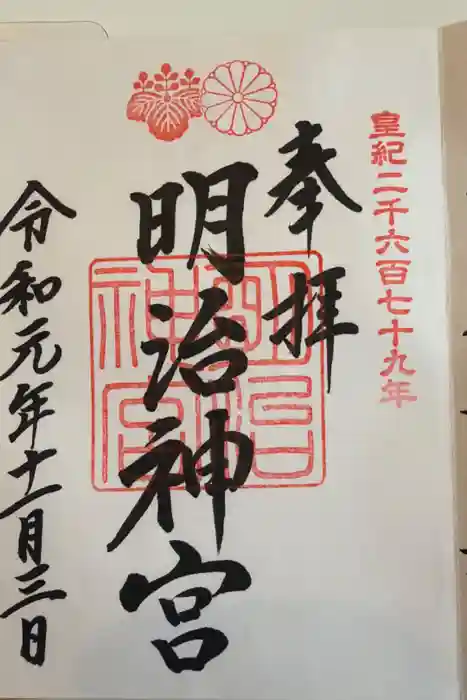 皇紀二千六百七十九年
奉拝
明治神宮
明治神宮
令和元年十一月三日